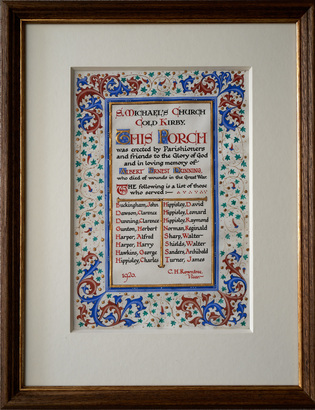 S. Michael's Church
Cold Kirby.
This Porch
was erected by Parishioners
and friends to the Glory of God
and in loving memory of
Albert Ernest Dunning,
who died of wounds in the Great War.
The following is a list of those
who served :—
Buckingham, John
Dawson, Clarence
Dunning, Clarence
Gunton, Herbert
Harper, Alfred
Harper, Harry
Hawkins, George
Hippisley, Charles
Hippisley, David
Hippisley, Leonard
Hippisley, Raymond
Norman, Reginald
Sharp, Walter
Shields, Walter
Sanders, Archibald
Turner, James
1920.
C. H.
Vicar